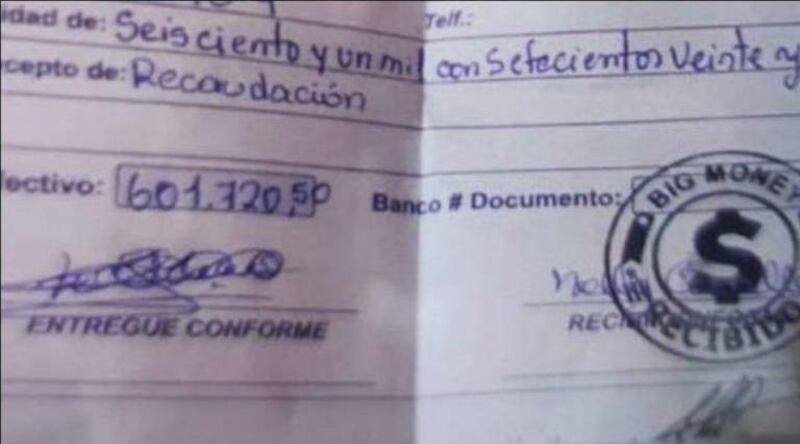 idad de: Seisciento y un mil con Setecientos Veinte y
Telf.:
cepto de: Recaudación
fectivo: 601.720,50 Banco # Documento:
BIG MONEY
$
RECIBIDO
ENTREGUE CONFORME